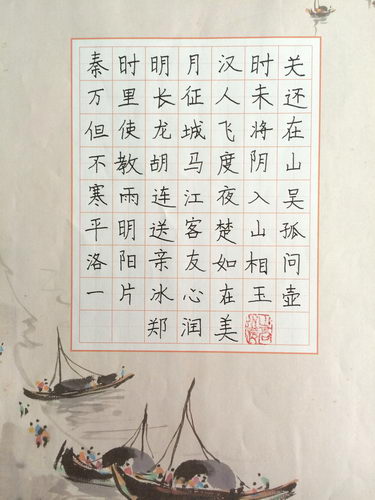 秦时明月汉时关
万里长征人未还
但使龙城飞将在
不教胡马度阴山
寒雨连江夜入吴
平明送客楚山孤
洛阳亲友如相问
一片冰心在玉壶
郑润美